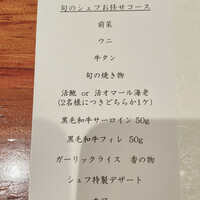 旬のシェフお任せコース
前菜
ウニ
牛タン
旬の焼き物
活鮑 or 活オマール海老
(2名様につきどちらか1ケ)
黒毛和牛サーロイン 50g
黒毛和牛フィレ 50g
ガーリックライス 香の物
シェフ特製デザート